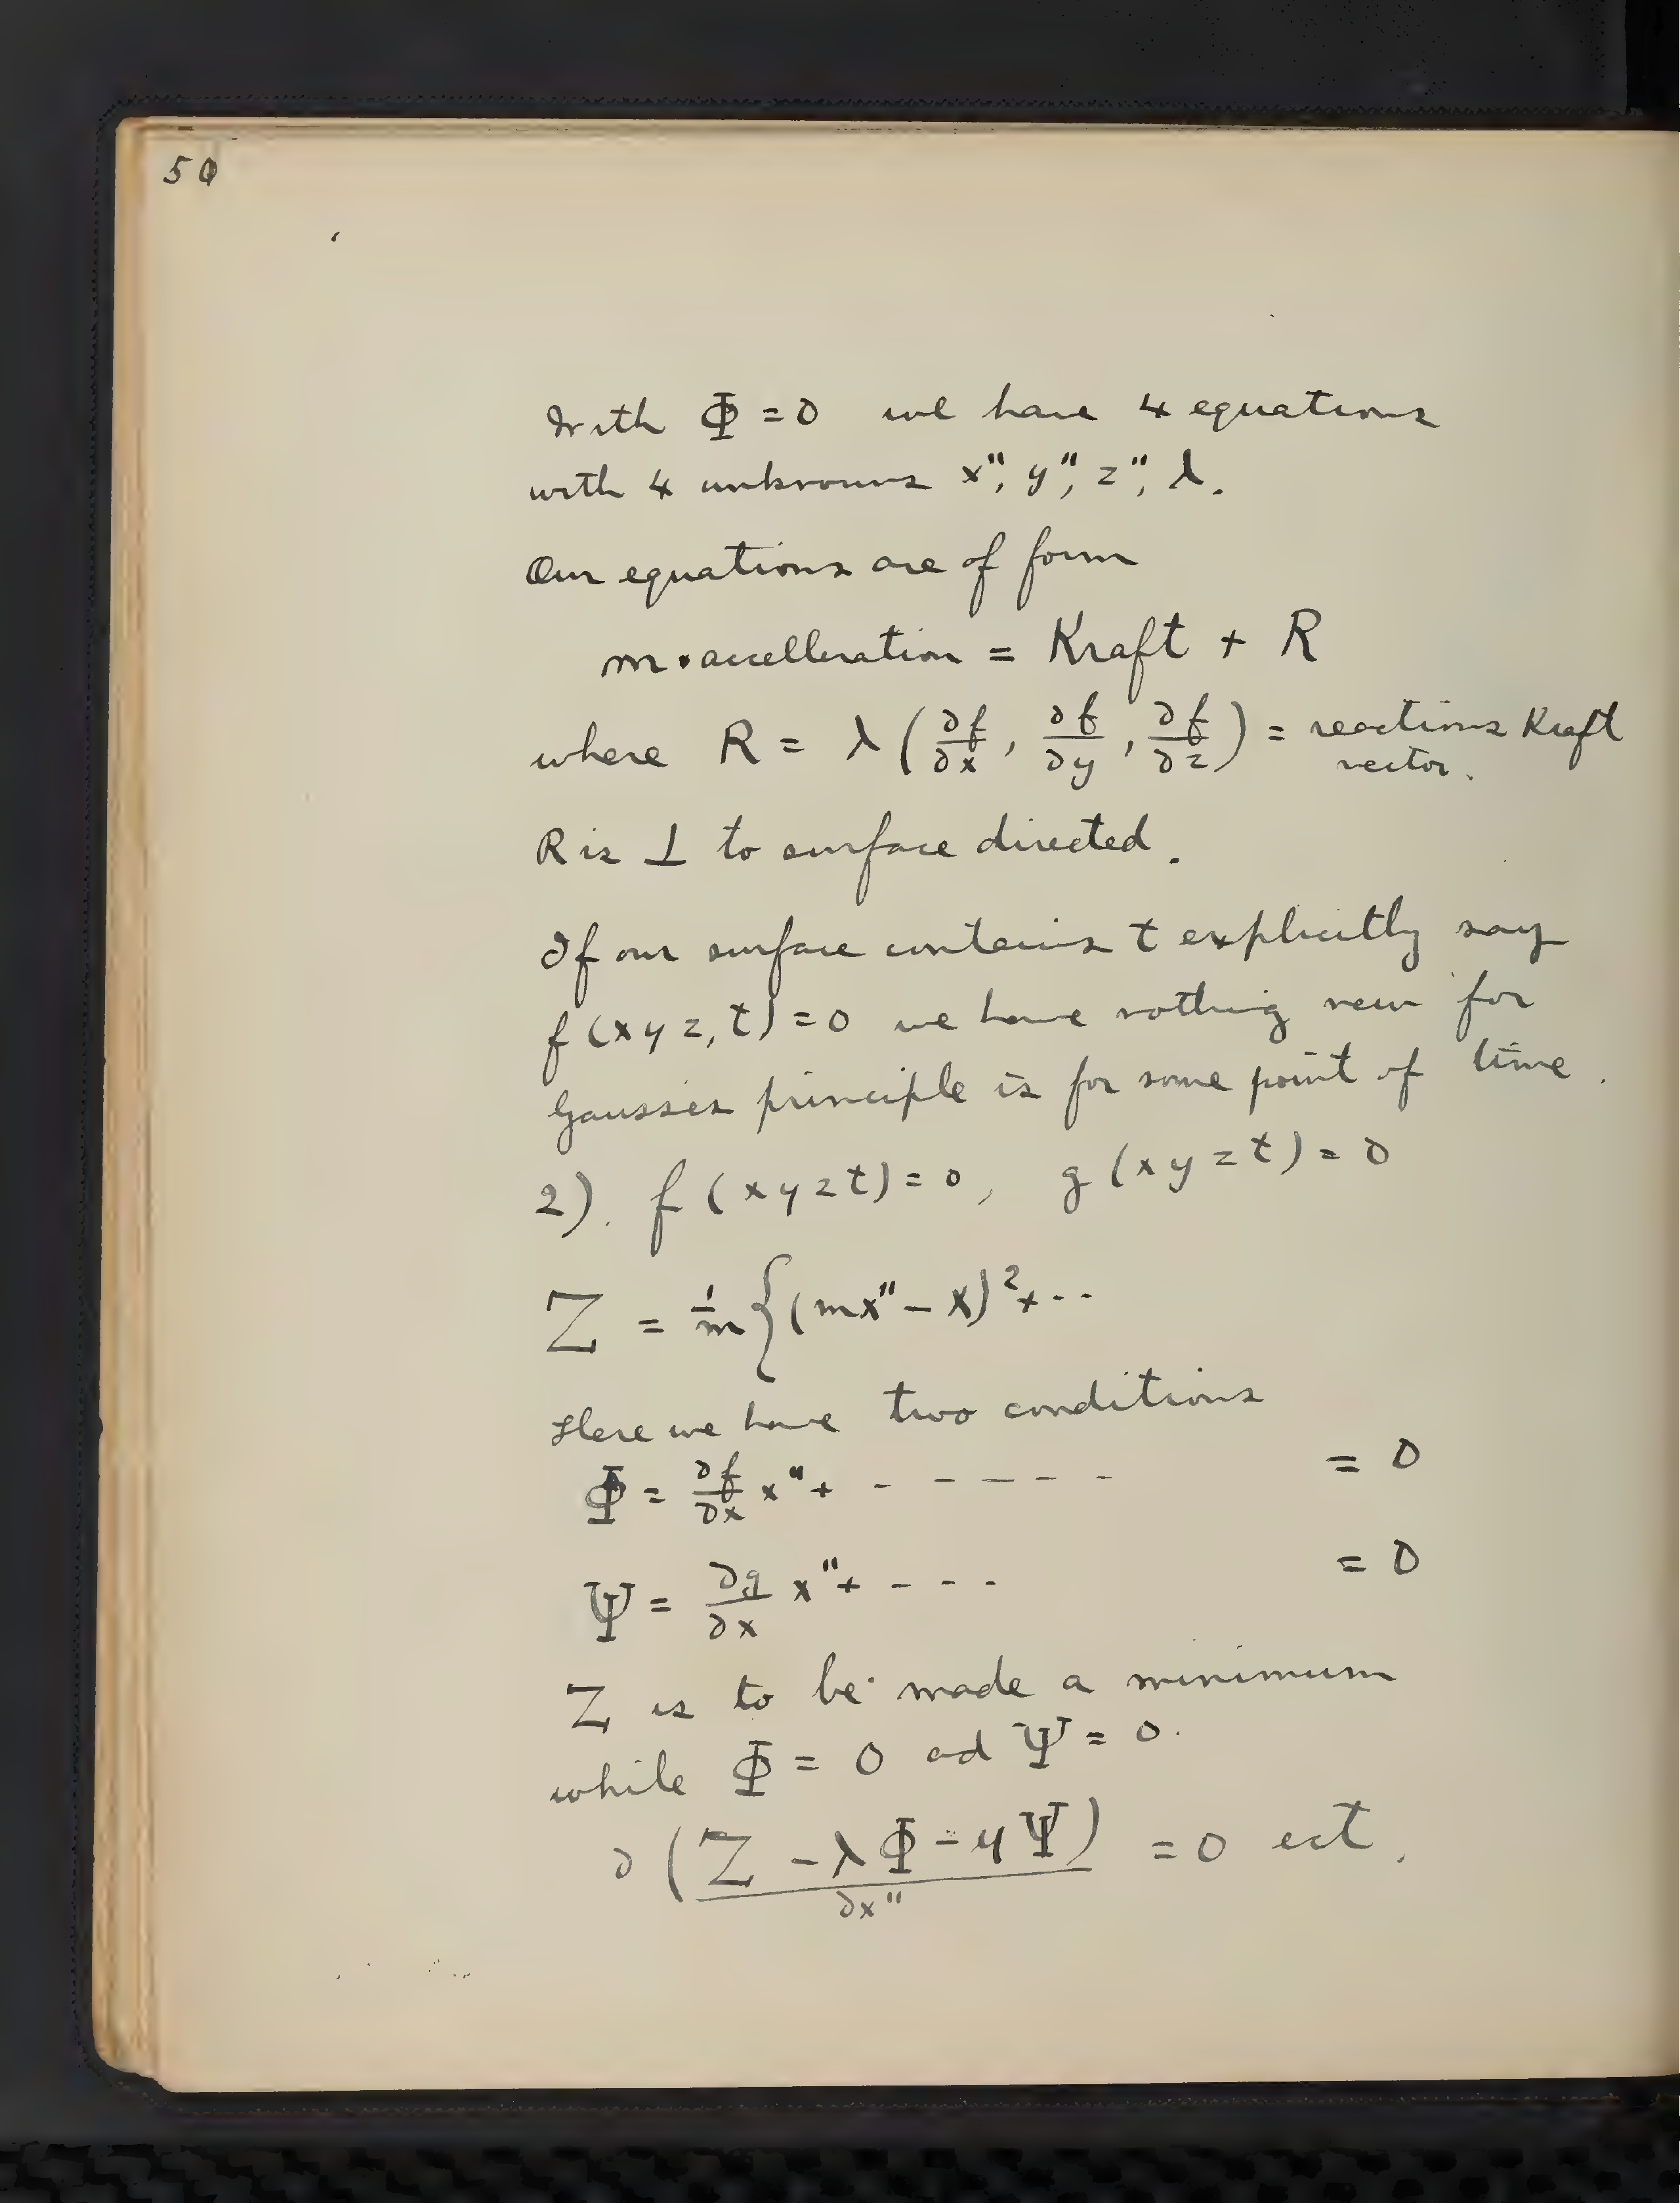 50
With Φ = 0 we have 4 equations
with 4 unknowns x'', y'', z'', λ.
Our equations are of form
m · accelleration = Kraft + R
where R = λ (∂f/∂x, ∂f/∂y, ∂f/∂z) = reactions Kraft
vector.
R is ⊥ to surface directed.
If our surface contains t explicitly say
f (x y z, t) = 0 we have nothing new for
Gausses principle is for some point of time.
2). f (x y z t) = 0, g (x y z t) = 0
Z = 1/m {(mx'' - X)² + ··
Here we have two conditions
Φ = ∂f/∂x x'' + - - - - - - = 0
Ψ = ∂g/∂x x'' + - - - = 0
Z is to be made a minimum
while Φ = 0 ad Ψ = 0.
∂ (Z - λ Φ - μ Ψ) / ∂x'' = 0 ect.